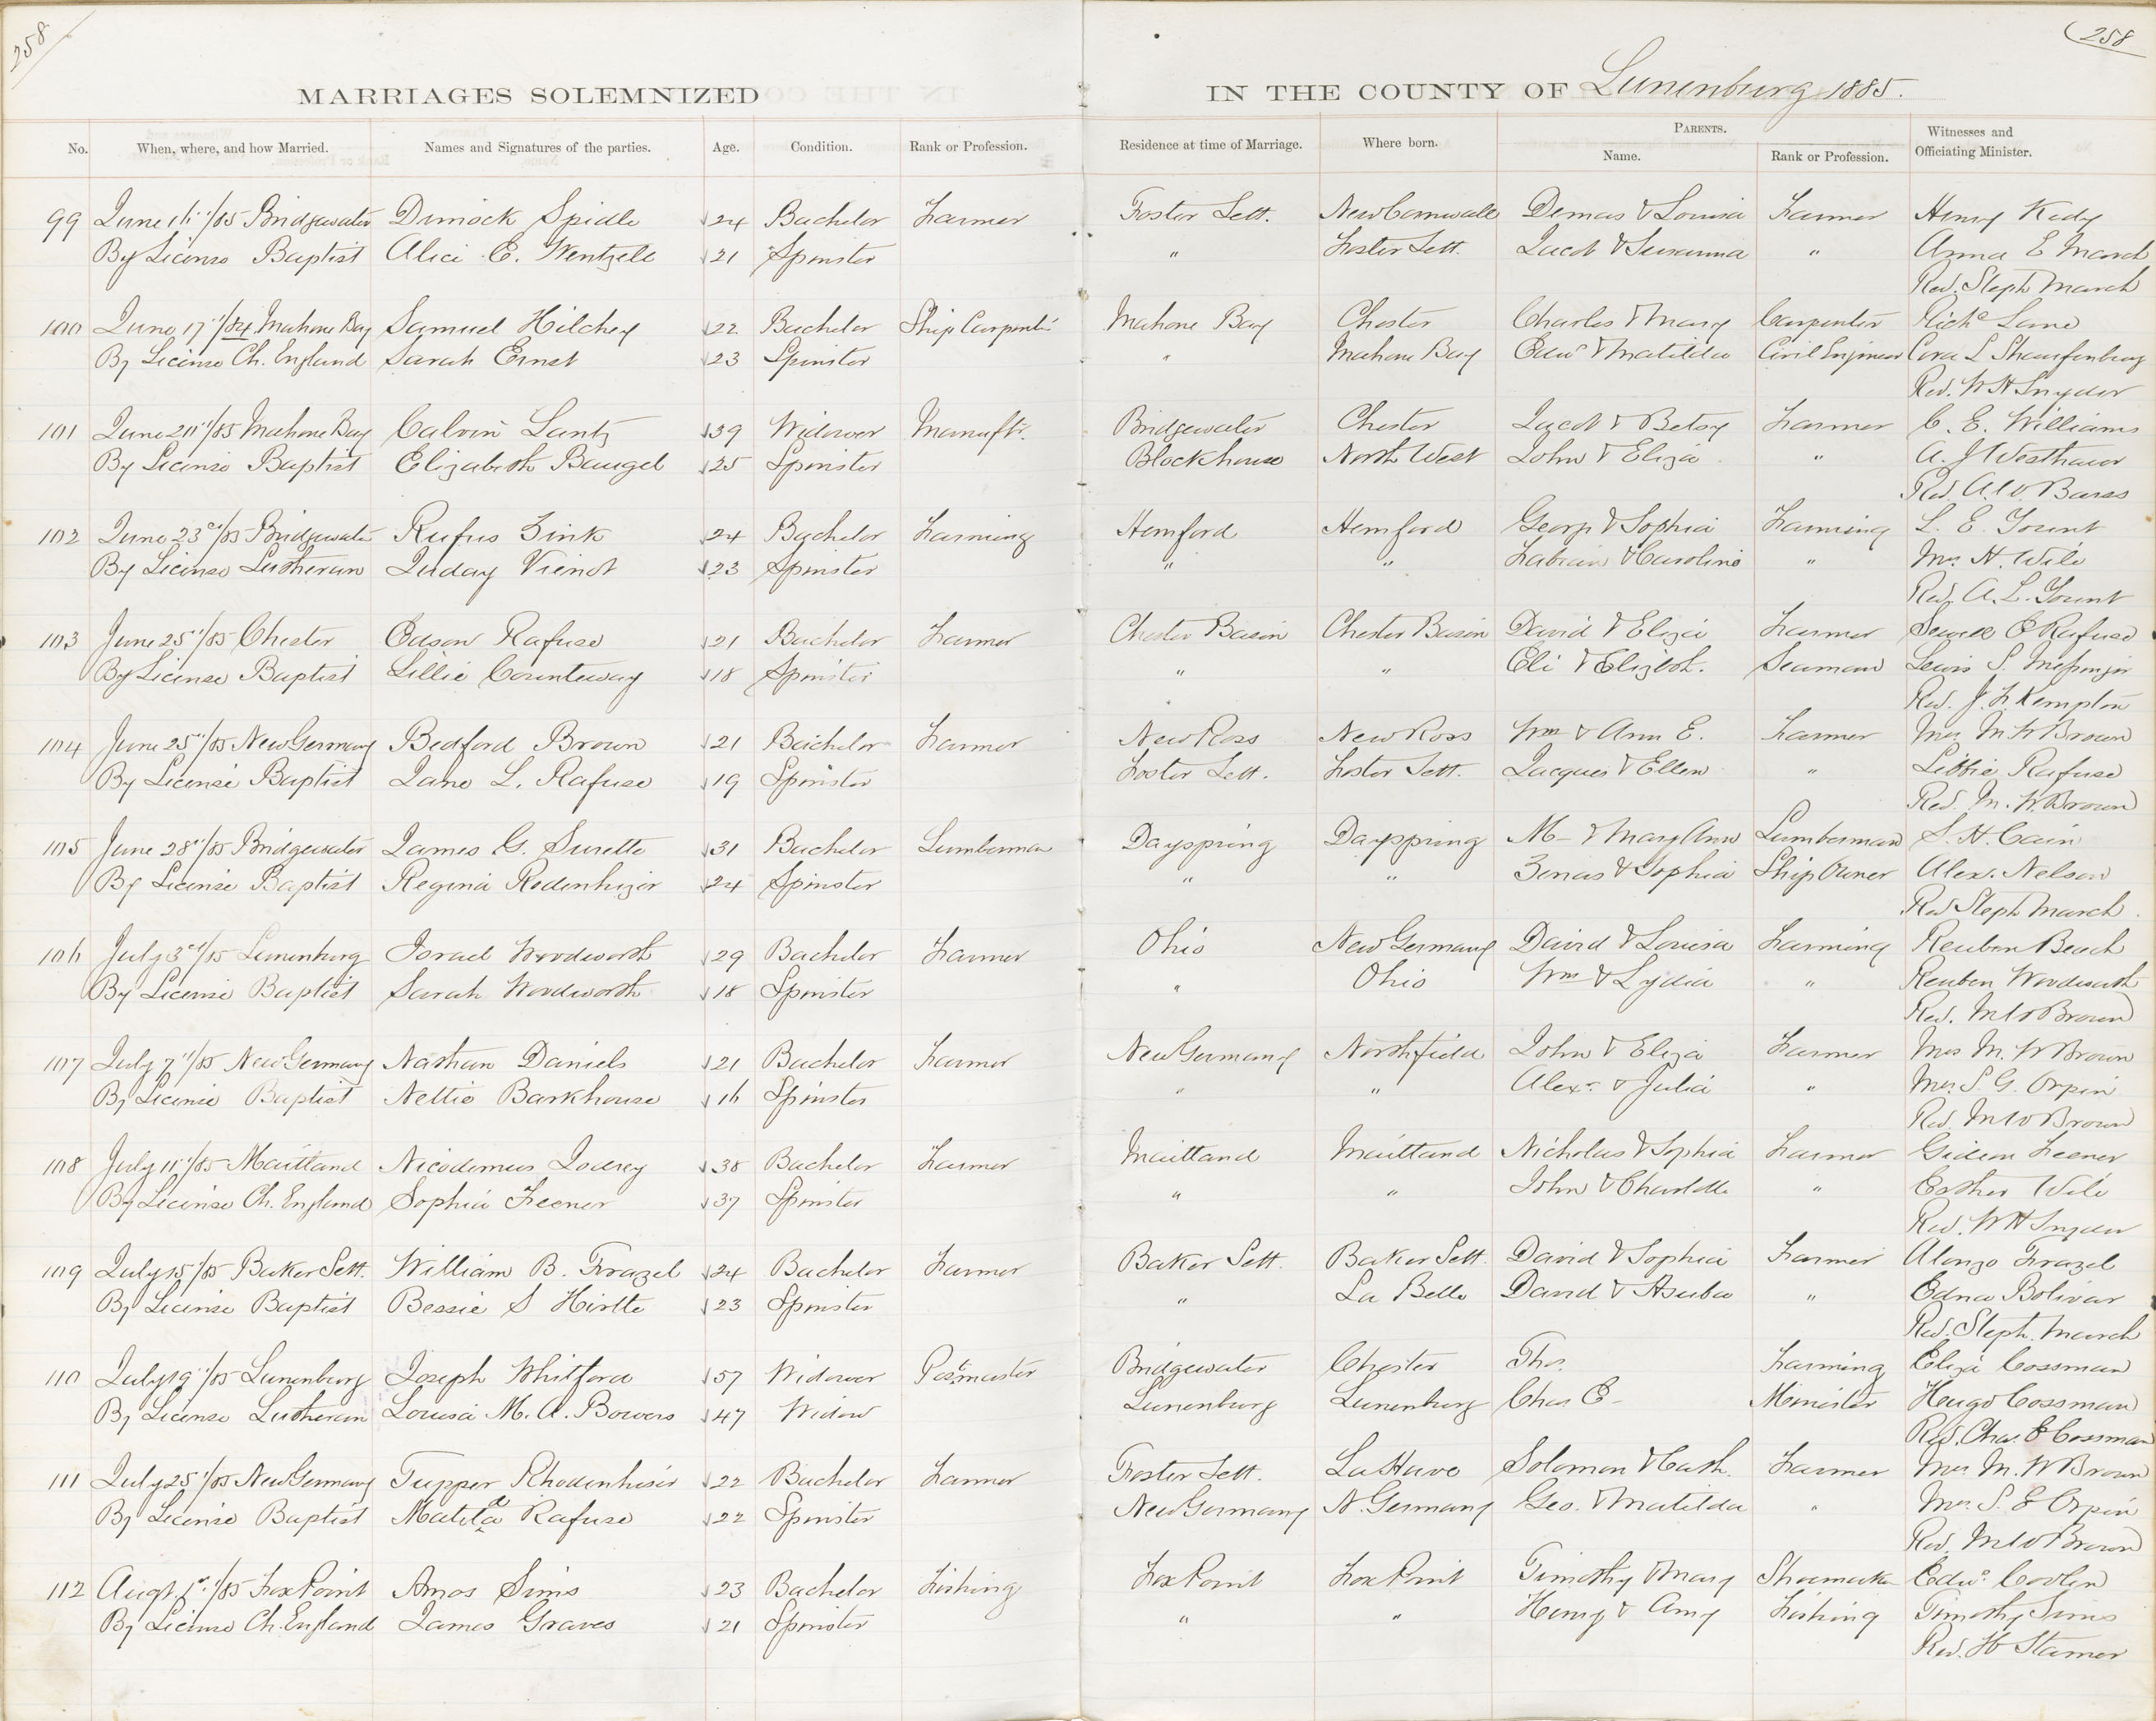 258
258
MARRIAGES SOLEMNIZED IN THE COUNTY OF Lunenburg 1885.
No. When, where, and how Married. Names and Signatures of the parties. Age. Condition. Rank or Profession. Residence at time of Marriage. Where born. Parents. Name. Rank or Profession. Witnesses and Officiating Minister.
99 June /85 Bridgewater Dimock Spidle 24 Bachelor Farmer Foster Sett. New Cornwall Demas & Louisa Farmer Henry Kedy
By License Baptist Alice E. Wentzell 21 Spinster " Foster Sett. Jacob & Susanna " Anna E March
Rev. Steph March
100 June 17"/84 Mahone Bay Samuel Hilchey 22 Bachelor Ship Carpenter Mahone Bay Chester Charles & Mary Carpenter Richd Lame
By License Ch. England Sarah Ernst 23 Spinster " Mahone Bay Edwd & Matilda Civil Engineer Cora L
Rev. W H Snyder
101 June 20"/85 Mahone Bay Calvin Lantz 39 Widower Manuftr. Bridgewater Chester Jacob & Betsy Farmer C. E. Williams
By License Baptist Elizabeth Baugel 25 Spinster Blockhouse North West John & Eliza " A. J Westhaver
Rev. A. W. Barss
102 June 23d/85 Bridgewater Rufus Zink 24 Bachelor Farming Hemford Hemford George & Sophia Farming L. E. Yount
By License Lutheran Juday Vienot 23 Spinster " " Fabian & Caroline " Mrs H. Wile
Rev. A. L. Yount
103 June 25"/85 Chester Edson Rafuse 21 Bachelor Farmer Chester Basin Chester Basin David & Eliza Farmer E Rafuse
By License Baptist Lillie Countaway 18 Spinster " " Eli & Elizbth. Seaman Lewis S. Messenger
Rev. J. F. Kempton
104 June 25"/85 New Germany Bedford Brown 21 Bachelor Farmer New Ross New Ross Wm & Ann E. Farmer Mrs M W Brown
By License Baptist Jane L. Rafuse 19 Spinster Foster Sett. Foster Sett. Jacques & Ellen " Libbie Rafuse
Rev. M. W. Brown
105 June 28"/85 Bridgewater James G. Surette 31 Bachelor Lumberman Dayspring Dayspring M— & Mary Ann Lumberman S. H. Cain
By License Baptist Regina Rodenhizer 24 Spinster " " Zenas & Sophia Ship Owner Alex. Nelson
Rev Steph March
106 July 3d/85 Lunenburg Israel Woodworth 29 Bachelor Farmer Ohio New Germany David & Louisa Farming Reuben Beach
By License Baptist Sarah Woodworth 18 Spinster " Ohio Wm & Lydia " Reuben Woodworth
Rev. M W Brown
107 July 7"/85 New Germany Nathan Daniels 21 Bachelor Farmer New Germany Northfield John & Eliza Farmer Mrs M. W Brown
By License Baptist Nettie Barkhouse 16 Spinster " " Alexr. & Julia " Mrs S. G. Orpin
Rev. M W Brown
108 July 11"/85 Maitland Nicodemus Lodrey 38 Bachelor Farmer Maitland Maitland Nicholas & Sophia Farmer Gideon Feener
By License Ch. England Sophia Feener 37 Spinster " " John & Charlotte " Esther Wile
Rev. W H Snyder
109 July 15/85 Baker Sett. William B. Frazel 24 Bachelor Farmer Baker Sett. Baker Sett. David & Sophia Farmer Alonzo Frazel
By License Baptist Bessie S Hirtle 23 Spinster " La Belle David & Asuba " Edna Bolivar
Rev. Steph. March
110 July 19"/85 Lunenburg Joseph Whitford 57 Widower Postmaster Bridgewater Chester Thos. Farming Eliza Cossman
By License Lutheran Louisa M. A. Bowers 47 Widow Lunenburg Lunenburg Chas E— Minister Hugo Cossman
Rev. Chas E Cossman
111 July 25"/85 New Germany Tupper Rhodenhiser 22 Bachelor Farmer Foster Sett. LaHave Solomon & Cath. Farmer Mrs M. W Brown
By License Baptist Matilda Rafuse 22 Spinster New Germany N. Germany Geo. & Matilda " Mrs. S. E Orpin
Rev. M W Brown
112 Augt. 1st/85 Fox Point Amos Sims 23 Bachelor Fishing Fox Point Fox Point Timothy & Mary Shoemaker Edwd.
By License Ch. England James Graves 21 Spinster " " Henry & Amy Fishing Timothy Sims
Rev. H Stamer